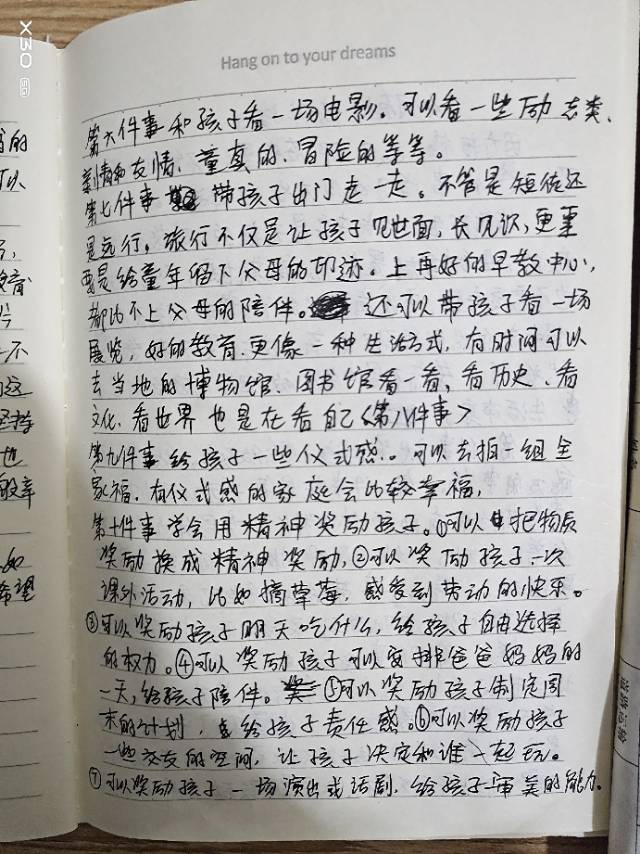 X30 5G
Hang on to your dreams
第六件事和孩子看一场电影。可以看一些励志类、
亲情和友情、童真的、冒险的等等。
第七件事 带孩子出门走一走。不管是短途还
是远行。旅行不仅是让孩子见世面,长见识,更重
要是给童年留下父母的印迹。上再好的早教中心,
都比不上父母的陪伴。还可以带孩子看一场
展览,好的教育,更像一种生活方式,有时间可以
去当地的博物馆、图书馆看一看,看历史、看
文化、看世界也是在看自己<第八件事>
第九件事 给孩子一些仪式感。可以去拍一组全
家福,有仪式感的家庭会比较幸福,
第十件事 学会用精神奖励孩子。①可以把物质
奖励换成精神奖励,②可以奖励孩子一次
课外活动,比如摘草莓,感受到劳动的快乐。
③可以奖励孩子明天吃什么,给孩子自由选择
的权力。④可以奖励孩子可以安排爸爸妈妈的
一天,给孩子陪伴。⑤可以奖励孩子制定周
末的计划,给孩子责任感。⑥可以奖励孩子
一些交友的空间,让孩子决定和谁一起玩。
⑦可以奖励孩子一场演出或话剧,给孩子审美的能力。
的
以
教育
不
这
也
如
希望